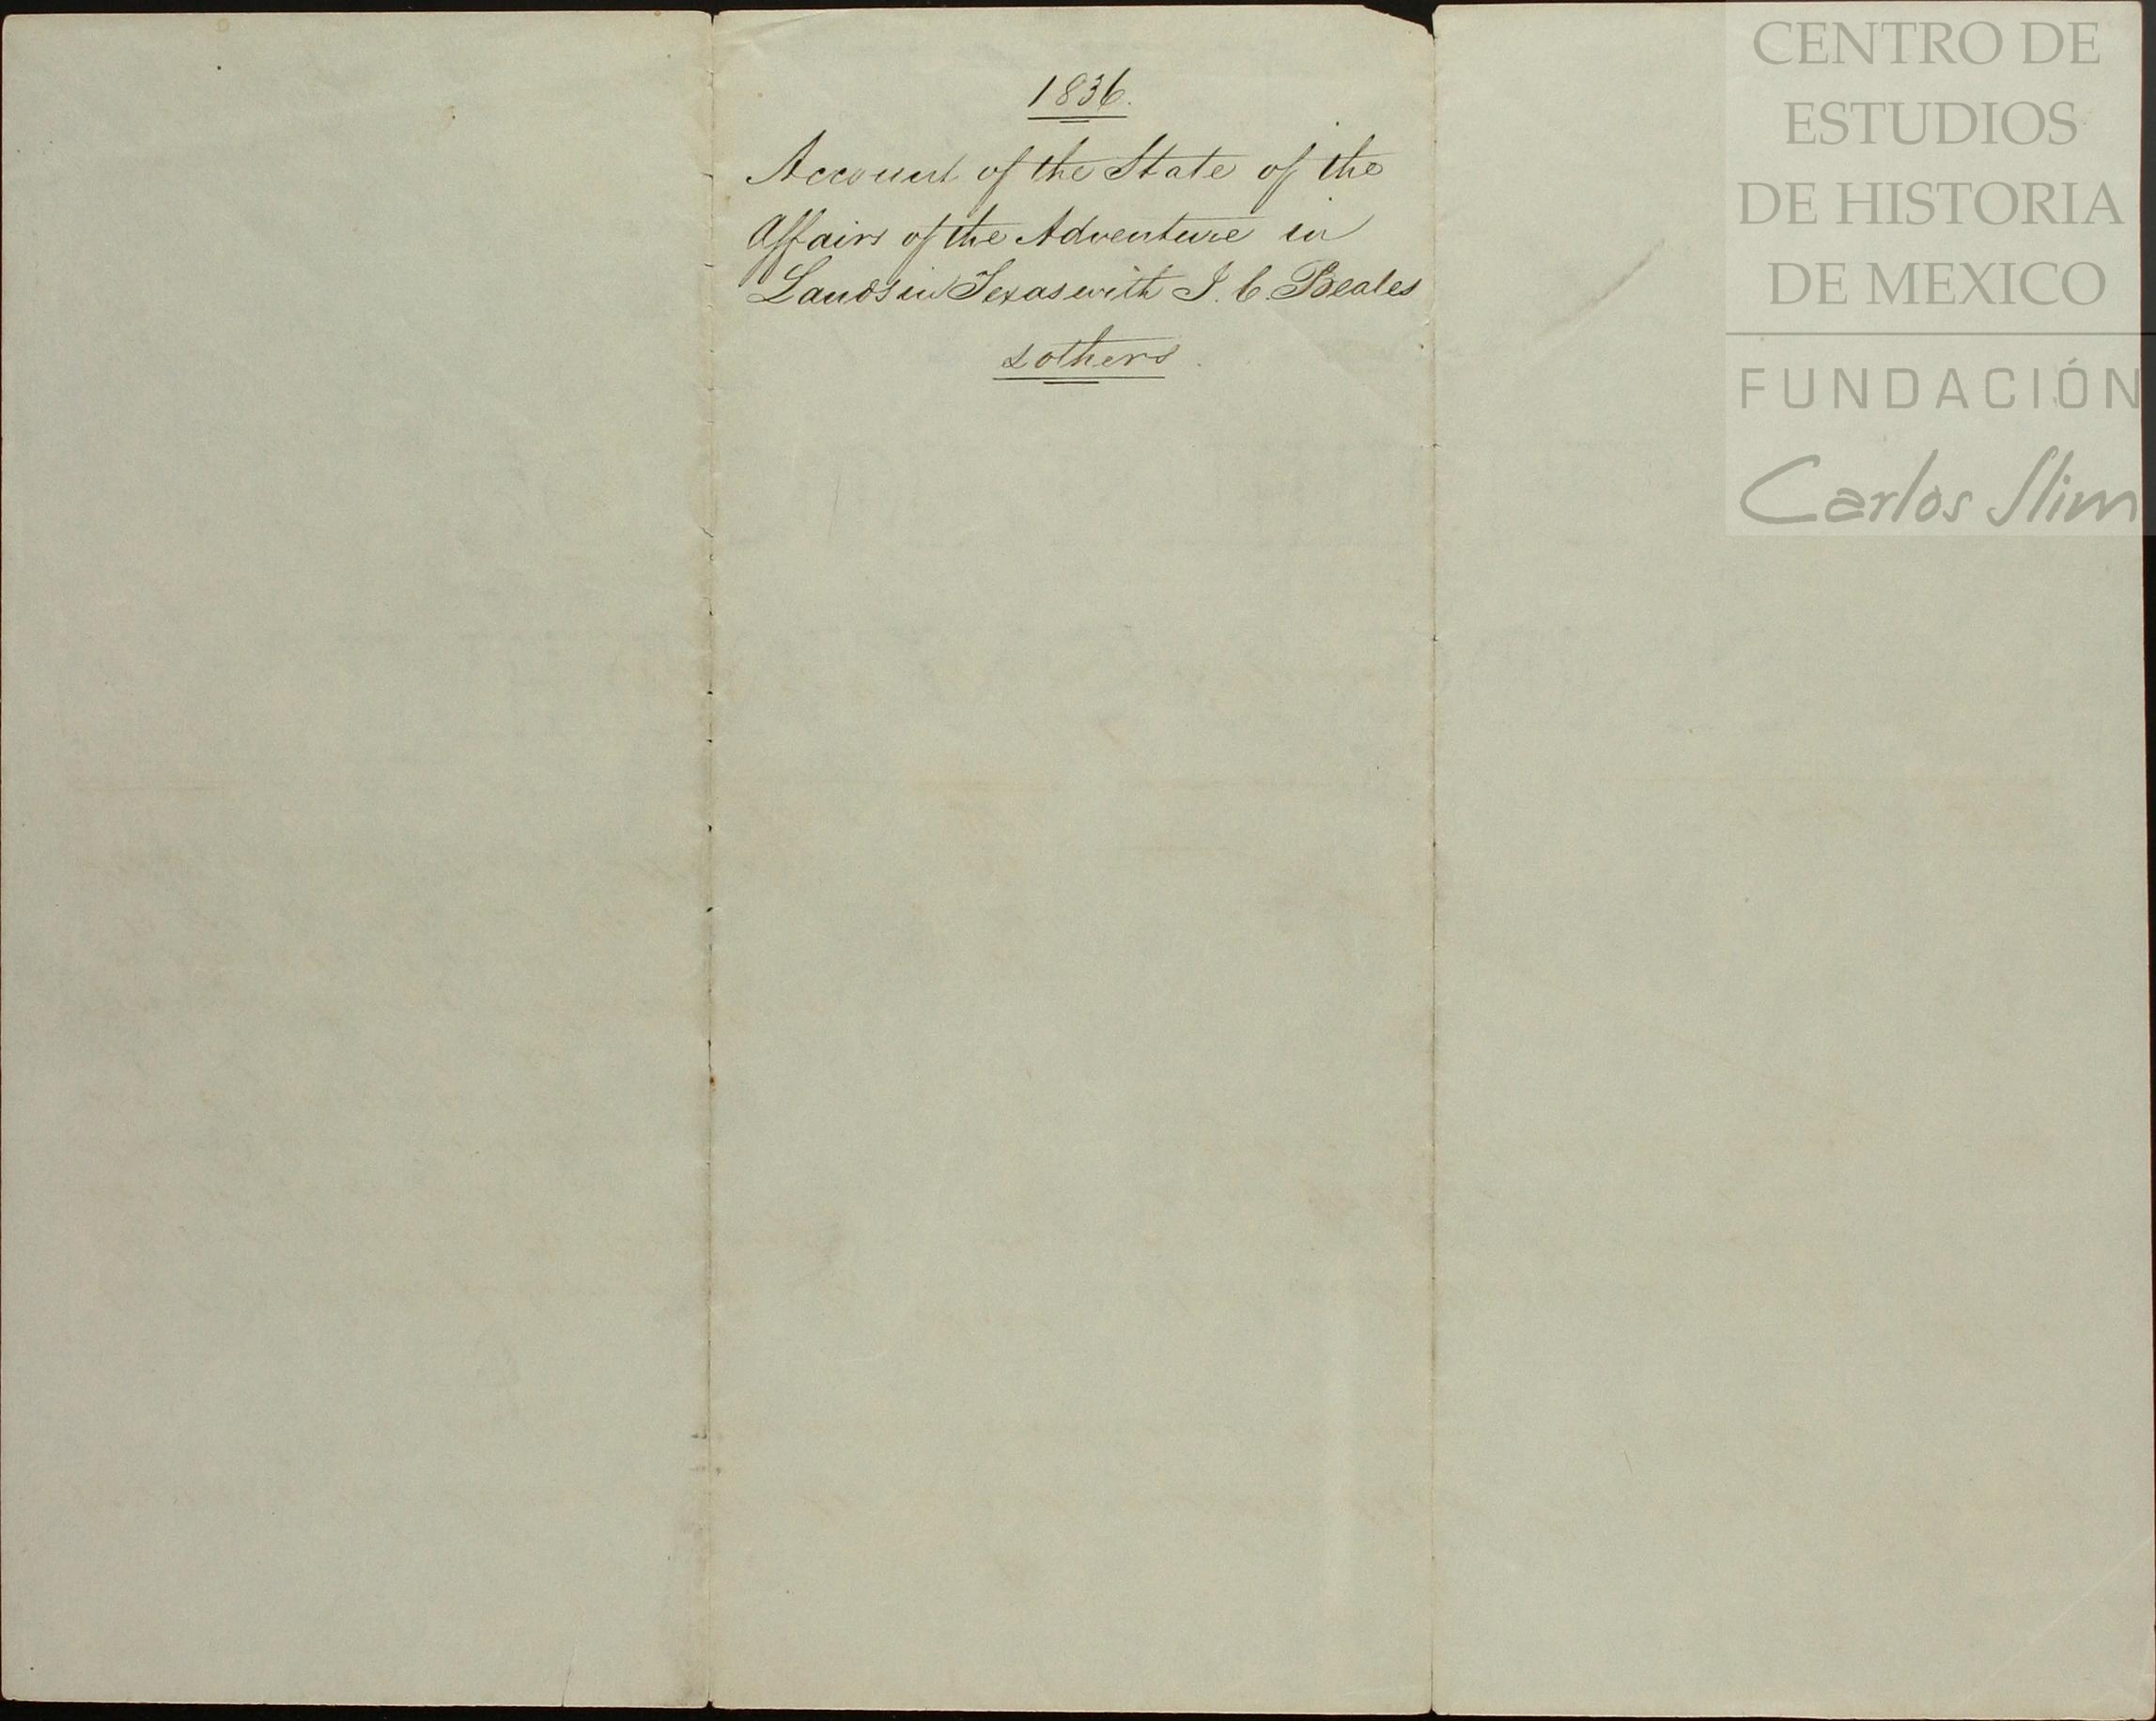 1836.
Account of the State of the
Affairs of the Adventure in
Lands in Texas with J. C. Beales
& others.
CENTRO DE
ESTUDIOS
DE HISTORIA
DE MEXICO
FUNDACIÓN
Carlos Slim